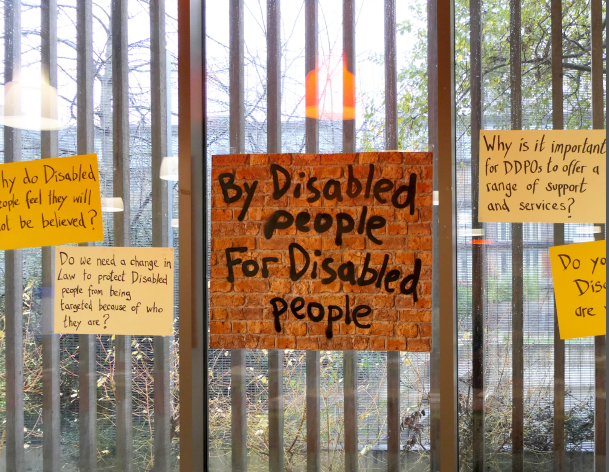 hy do Disabled
eople feel they will
ot be believed?
Do we need a change in
Law to protect Disabled
people from being
targeted because of who
they are?
By Disabled
people
For Disabled
people
Why is it important
for DDPOs to offer a
range of support
and services?
Do yo
Dis
are